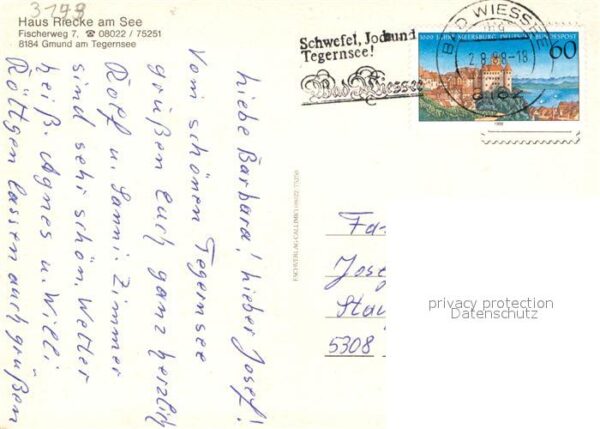 3799
Haus Riecke am See
Fischerweg 7, ☎ 08022 / 75251
8184 Gmund am Tegernsee
Liebe Barbara! Lieber Josef!
Vom schönen Tegernsee
grüßen Euch ganz herzlich
Rolf u. Hanni. Zimmer
sind sehr schön. Wetter
heiß. Agnes u. Willi
Röttgen lassen auch grüßen
Schwefel, Jod und
Tegernsee!
Bad Wiessee
BAD WIESSEE
2.8.88-18
8182
1000 JAHRE MEERSBURG DEUTSCHE BUNDESPOST
60
1988
ESCHVERLAG CALLIMIKO 08022/75250
Fa
Jose
Stau
5308
privacy protection
Datenschutz